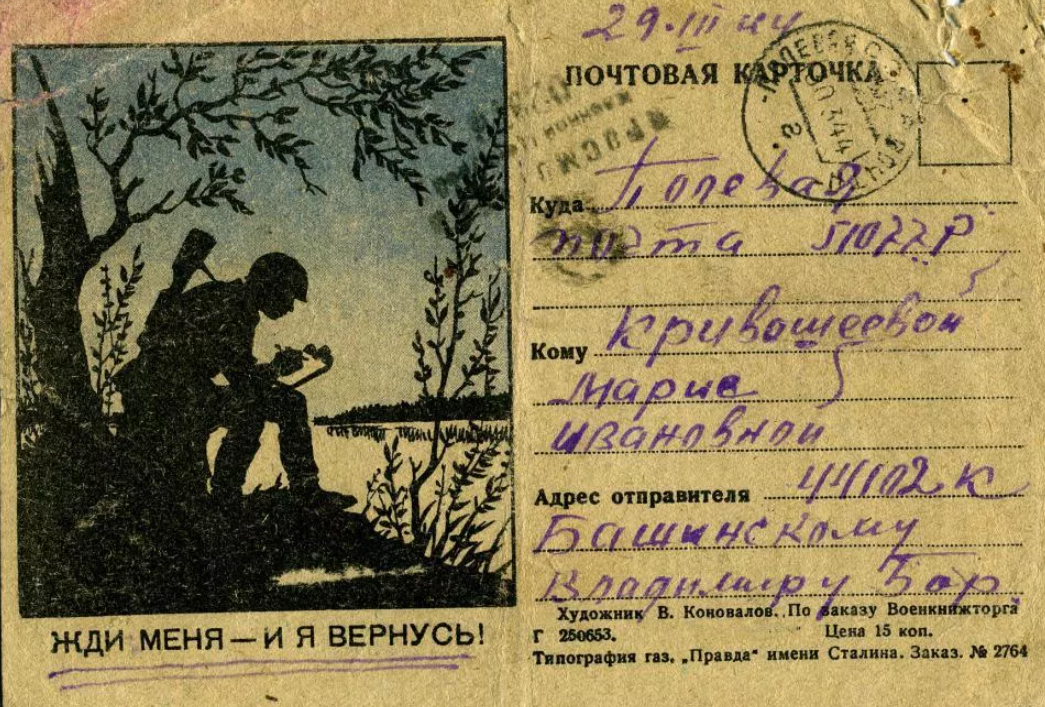 29.III 44
ПОЧТОВАЯ КАРТОЧКА
Куда Полевая
почта 51077Р
Кому Кривошеевой
Марие
Ивановной
Адрес отправителя 44102 К
Башинскому
Владимиру Бор.
Художник В. Коновалов. По заказу Военкнижторга
Г 250653. Цена 15 коп.
Типография газ. „Правда“ имени Сталина. Заказ. № 2764
ЖДИ МЕНЯ — И Я ВЕРНУСЬ!